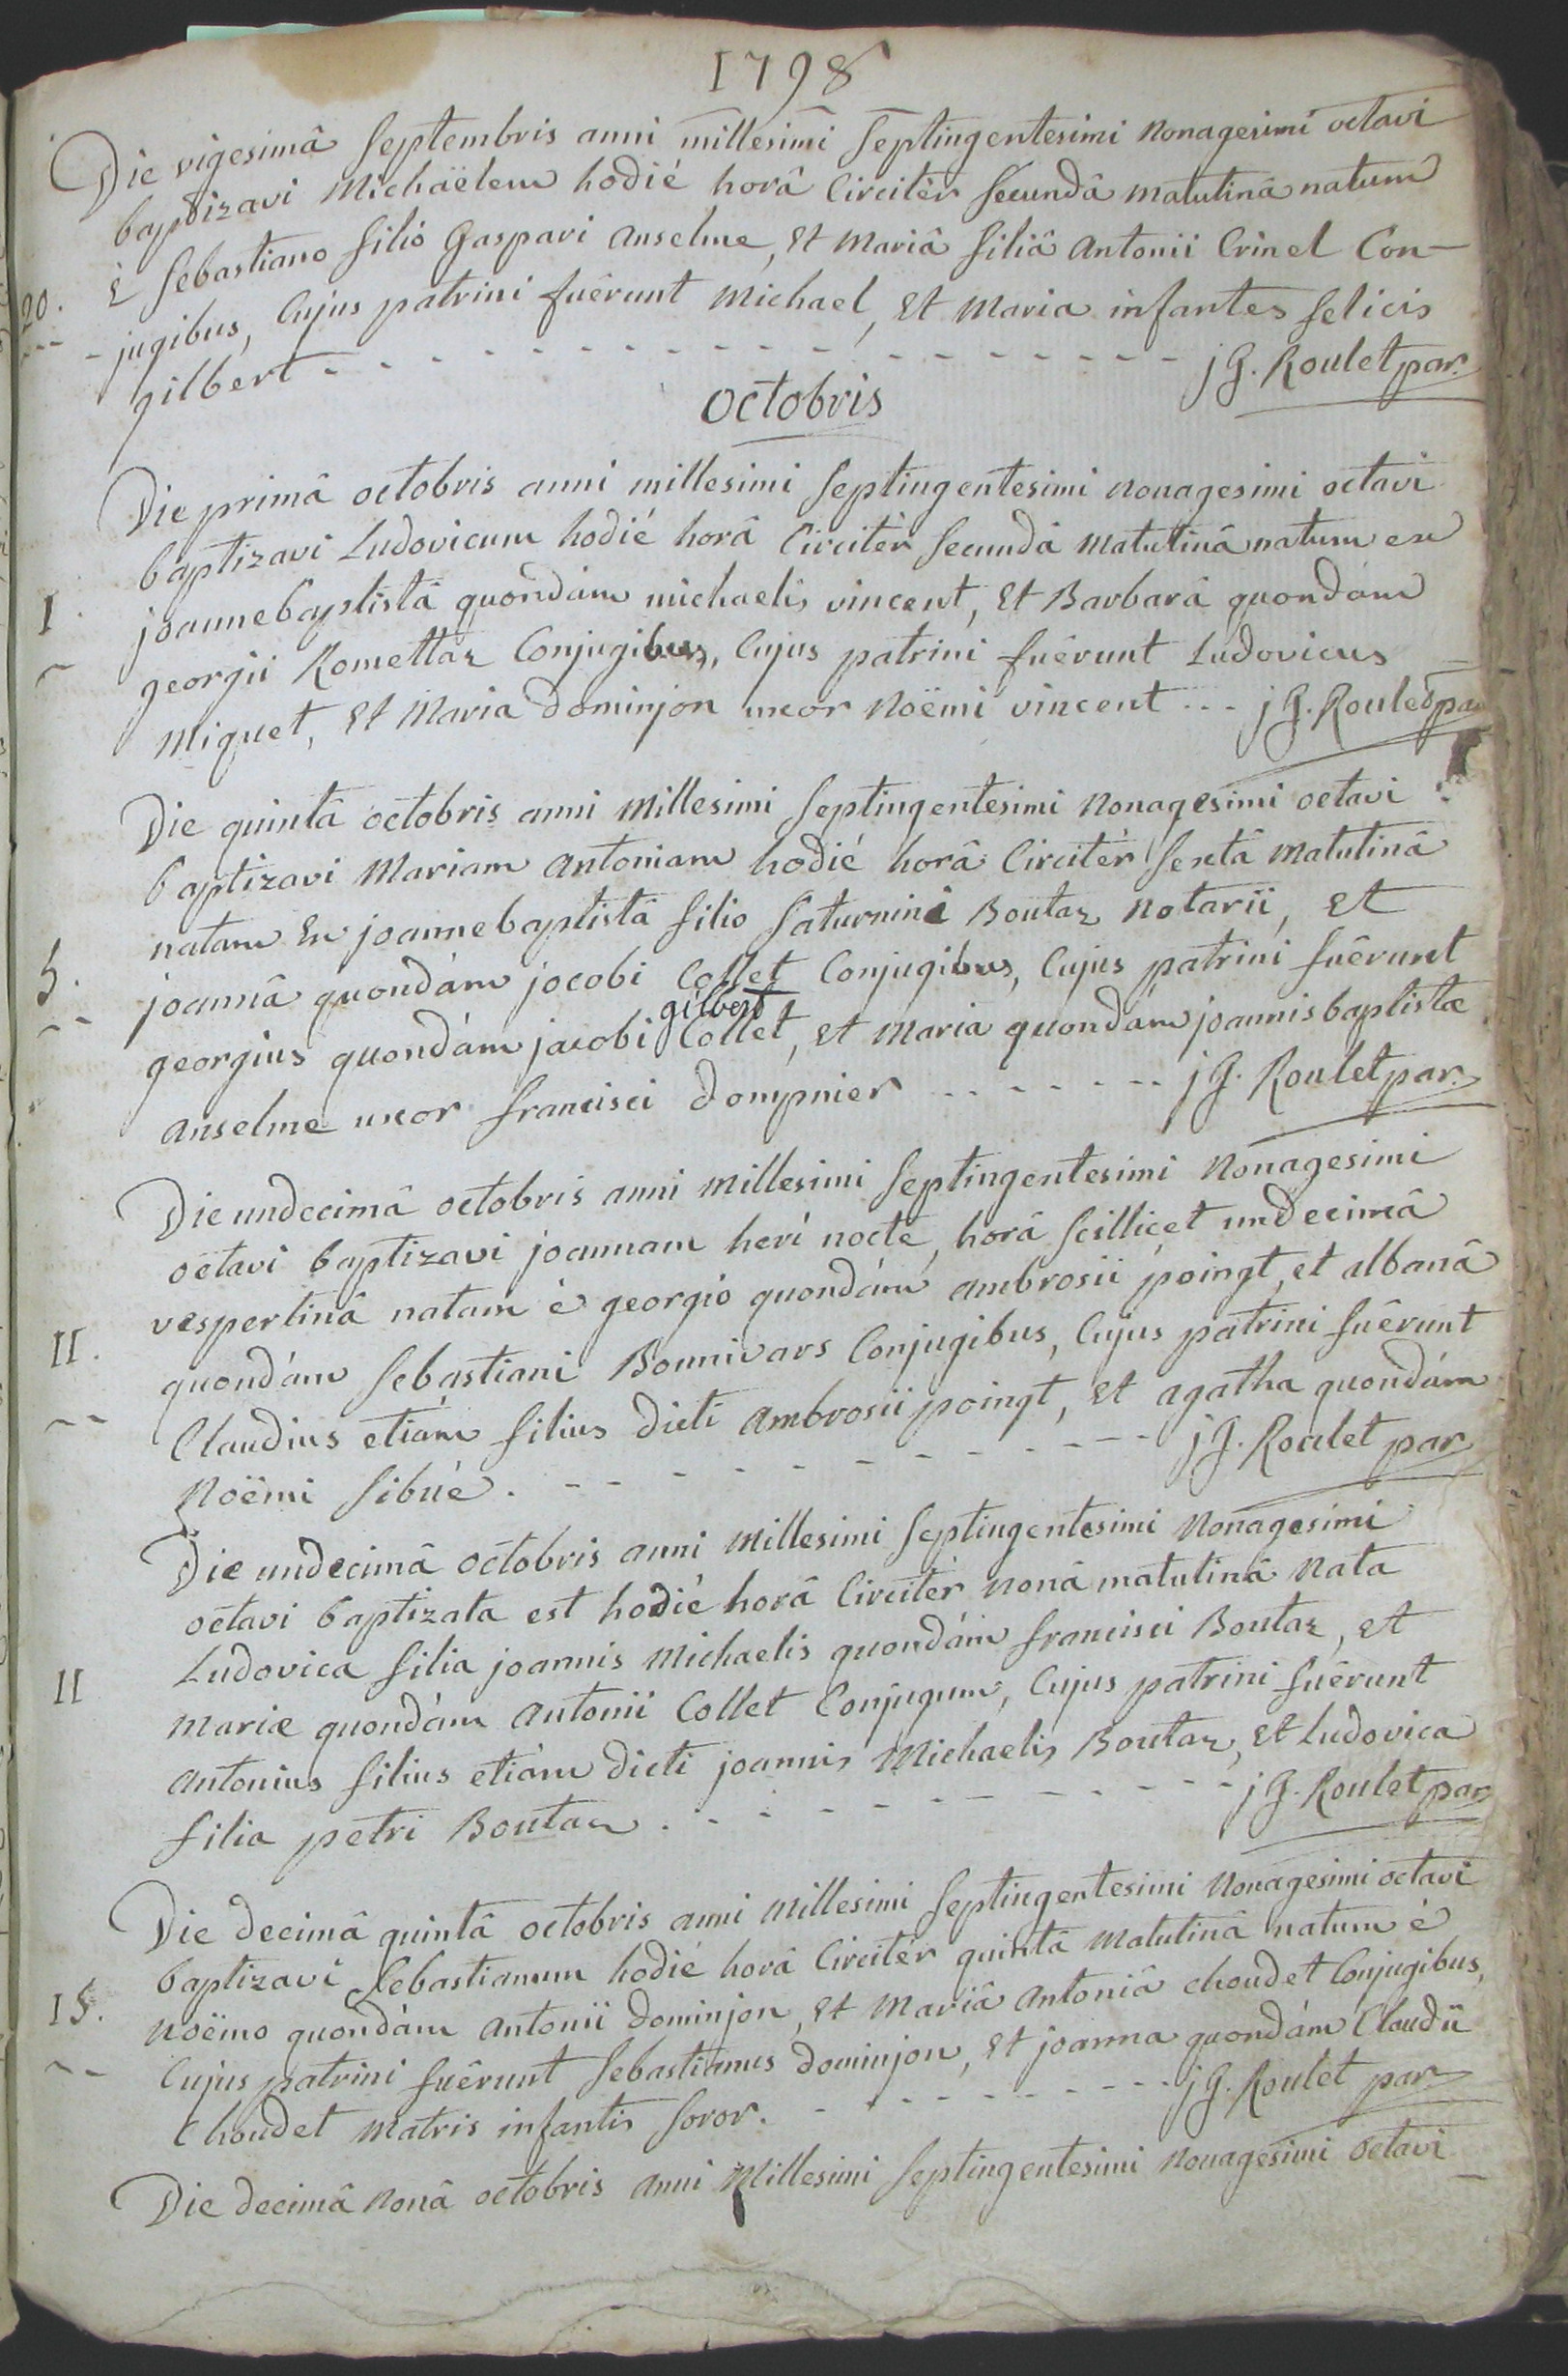 1798
Die vigesimâ Septembris anni millesimi Septingentesimi Nonagesimi octavi
baptizavi Michäelem hodié horâ Circitèr Secundâ matutinâ natum
20. È Sebastiano filio Gaspari Anselme, Et Mariâ filiâ Antonii Crinel Con-
jugibus, Cujus patrini fuêrunt Michael, Et Maria infantes felicis
gilbert - - - - - - - - - - - - - - - - - jG. Roulet par.
octobris
Die primâ octobris anni millesimi Septingentesimi nonagesimi octavi
baptizavi Ludovicum hodié horâ Circitèr Secundâ Matutinâ natum ex
I joannebaptistâ quondàm michaelis vincent, Et Barbarâ quondàm
georgii Romettaz Conjugibus, Cujus patrini fuêrunt Ludovicus
Miquet, Et Maria dominjon uxor Noëmi vincent - - - jG. Roulet par
Die quintâ octobris anni Millesimi Septingentesimi Nonagesimi octavi
baptizavi Mariam Antoniam hodié horâ Circitèr Sextâ Matutinâ
natam Ex joannebaptistâ filio Saturnini Boutaz Notarii, Et
5. joannâ quondàm jocobi Collet Conjugibus, Cujus patrini fuêrunt
gilbert
georgius quondàm jacobi Collet, Et Maria quondàm joannisbaptistæ
Anselme uxor francisci dompnier - - - - - - - jG. Roulet par.
Die undecimâ octobris anni Millesimi Septingentesimi Nonagesimi
octavi baptizavi joannam heri nocte, horâ Scillicet undecimâ
vespertinâ natam è georgio quondàm ambrosii poingt, et albanâ
II. quondàm Sebastiani Bonnivars Conjugibus, Cujus patrini fuêrunt
Claudius etiàm filius dicti Ambrosii poingt, Et agatha quondàm
Noëmi Sibué. - - - - - - - - - - - - jG. Roulet par
Die undecimâ octobris anni Millesimi Septingentesimi Nonagesimi
octavi baptizata est hodié horâ Circitèr nonâ matutinâ Nata
II Ludovica filia joannis Michaelis quondàm francisci Boutaz, Et
Mariæ quondàm Antonii Collet Conjugum, Cujus patrini fuêrunt
Antonius filius etiàm dicti joannis Michaelis Boutaz, Et Ludovica
filia petri Boutaz. - - - - - - - - - - - jG. Roulet par
Die decimâ quintâ octobris anni Millesimi Septingentesimi Nonagesimi octavi
baptizavi Sebastianum hodié horâ Circitèr quintâ Matutinâ natum è
15. Noëmo quondàm Antonii Dominjon, Et Mariâ Antoniâ choudet Conjugibus,
Cujus patrini fuêrunt Sebastianus dominjon, Et joanna quondàm Claudii
Choudet Matris infantis Soror. - - - - - - - - - jG. Roulet par
Die decimâ Nonâ octobris Anni Millesimi Septingentesimi Nonagesimi octavi